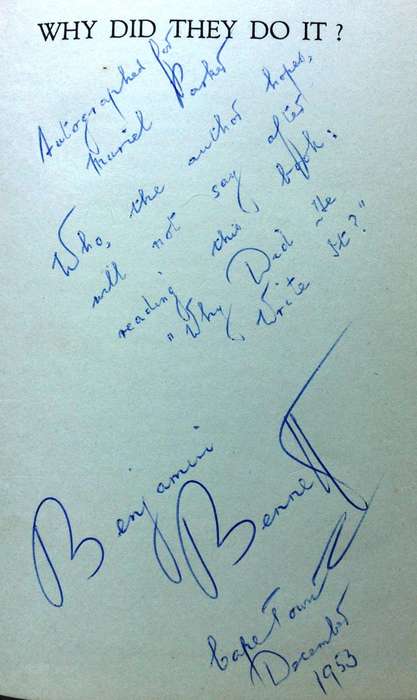 WHY DID THEY DO IT?
Autographed for
Muriel Parker
Who, the author hopes,
will not say after
reading this book:
"Why Did He
Write It?"
Benjamin
Bennett
Cape Town
December
1953